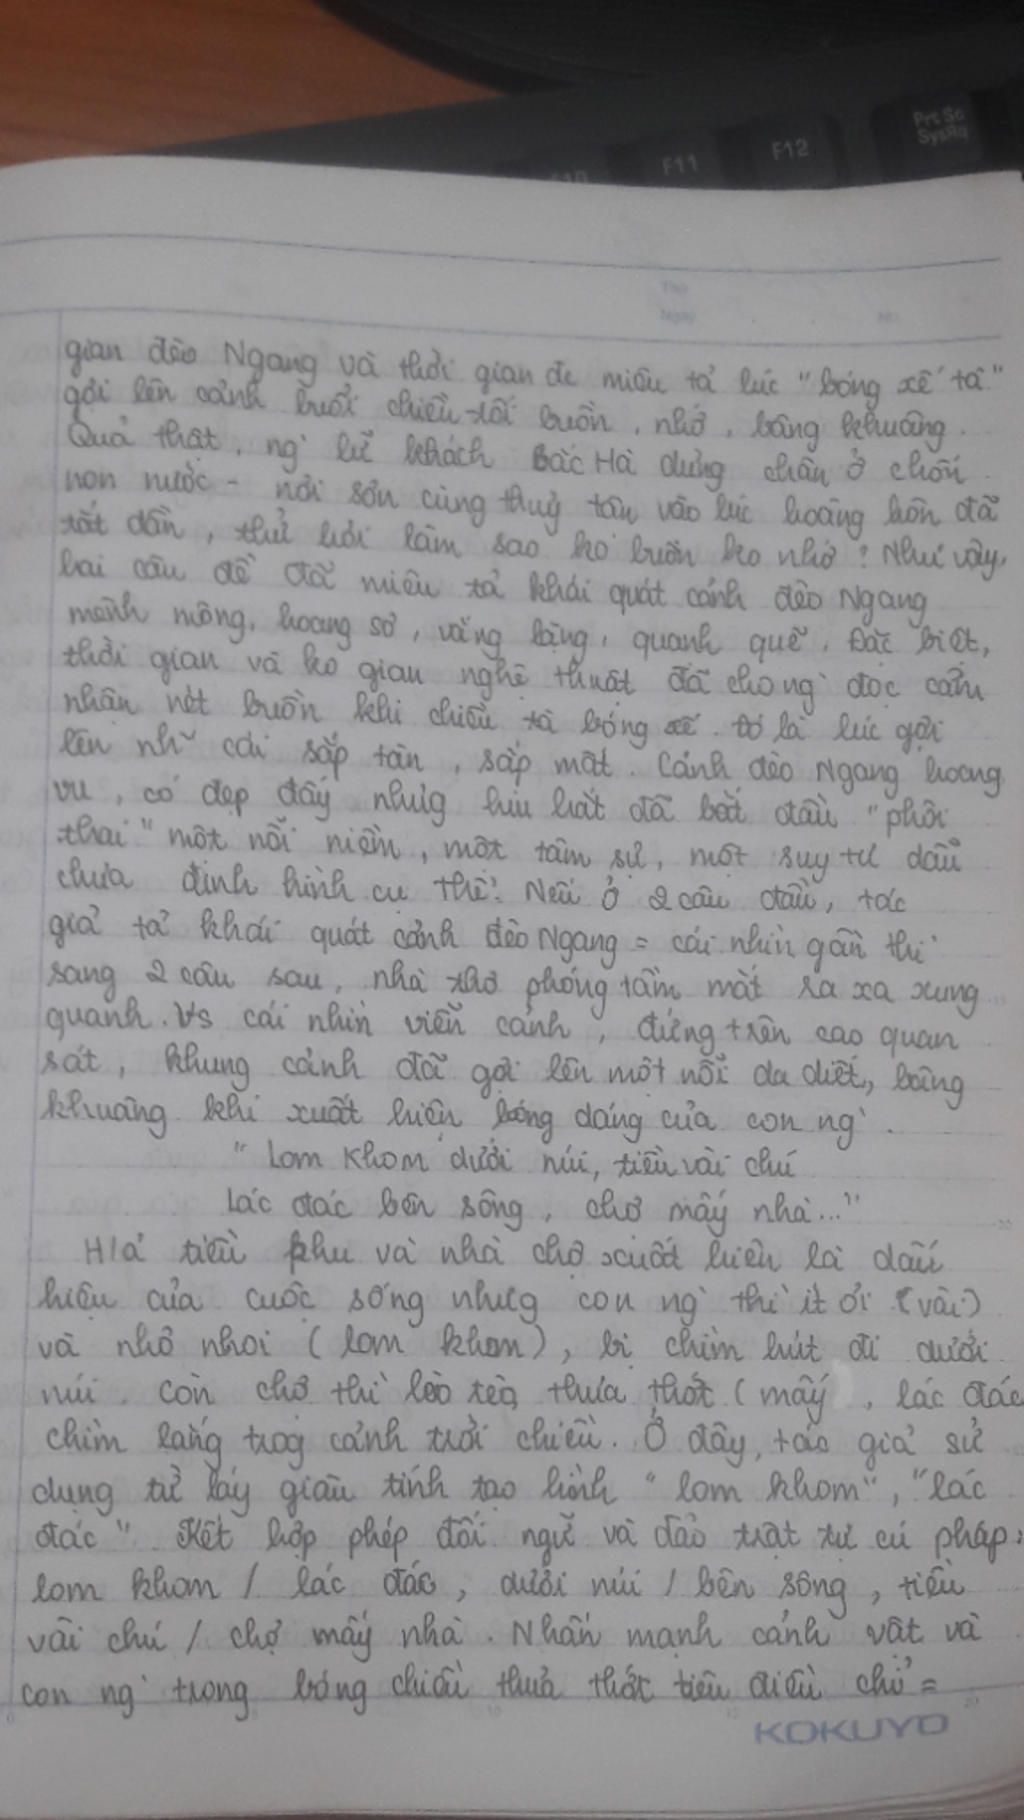 F11
F12
Prt Sc
SysRq
Thứ
Ngày
No.
gian đèo Ngang và thời gian đc miêu tả lúc "bóng xế tà"
gợi lên cảnh buổi chiều tối buồn, nhớ, bâng khuâng.
Quả thật, ng` lữ khách Bắc Hà dừng chân ở chốn
non nước - nơi sơn cùng thuỷ tận vào lúc hoàng hôn đã
tắt dần, thử hỏi làm sao ko buồn ko nhớ? Như vậy,
hai câu đề đã miêu tả khái quát cảnh đèo Ngang
mênh mông, hoang sơ, vắng lặng, quạnh quẽ. Đặc biệt,
thời gian và ko gian nghệ thuật đã cho ng` đọc cảm
nhận nét buồn khi chiều tà bóng xế. Đó là lúc gợi
lên nh~ cái sắp tàn, sắp mất. Cảnh đèo Ngang hoang
vu, có đẹp đấy nhưg hiu hắt đã bắt đầu "phôi
thai" một nỗi niềm, một tâm sự, một suy tư dẫu
chưa định hình cụ thể. Nếu ở 2 câu đầu, tác
giả tả khái quát cảnh đèo Ngang = cái nhìn gần thì
sang 2 câu sau, nhà thơ phóng tầm mắt ra xa xung
quanh. Vs cái nhìn viễn cảnh, đứng trên cao quan
sát, khung cảnh đã gợi lên một nỗi da diết, bâng
khuâng khi xuất hiện bóng dáng của con ng`.
"Lom khom dưới núi, tiều vài chú
Lác đác bên sông, chợ mấy nhà..."
H/ả tiều phu và nhà chợ xuất hiện là dấu
hiệu của cuộc sống nhưg con ng` thì ít ỏi (vài)
và nhỏ nhoi (lom khom), bị chìm hút đi dưới
núi. Còn chợ thì lèo tèo, thưa thớt (mấy), lác đác
chìm lắng trog cảnh trời chiều. Ở đây, tác giả sử
dụng từ láy giàu tính tạo hình "lom khom", "lác
đác". Kết hợp phép đối ngữ và đảo trật tự cú pháp:
lom khom / lác đác, dưới núi / bên sông, tiều
vài chú / chợ mấy nhà. Nhấn mạnh cảnh vật và
con ng` trong bóng chiều thưa thớt tiêu điều chỉ =
KOKUYO